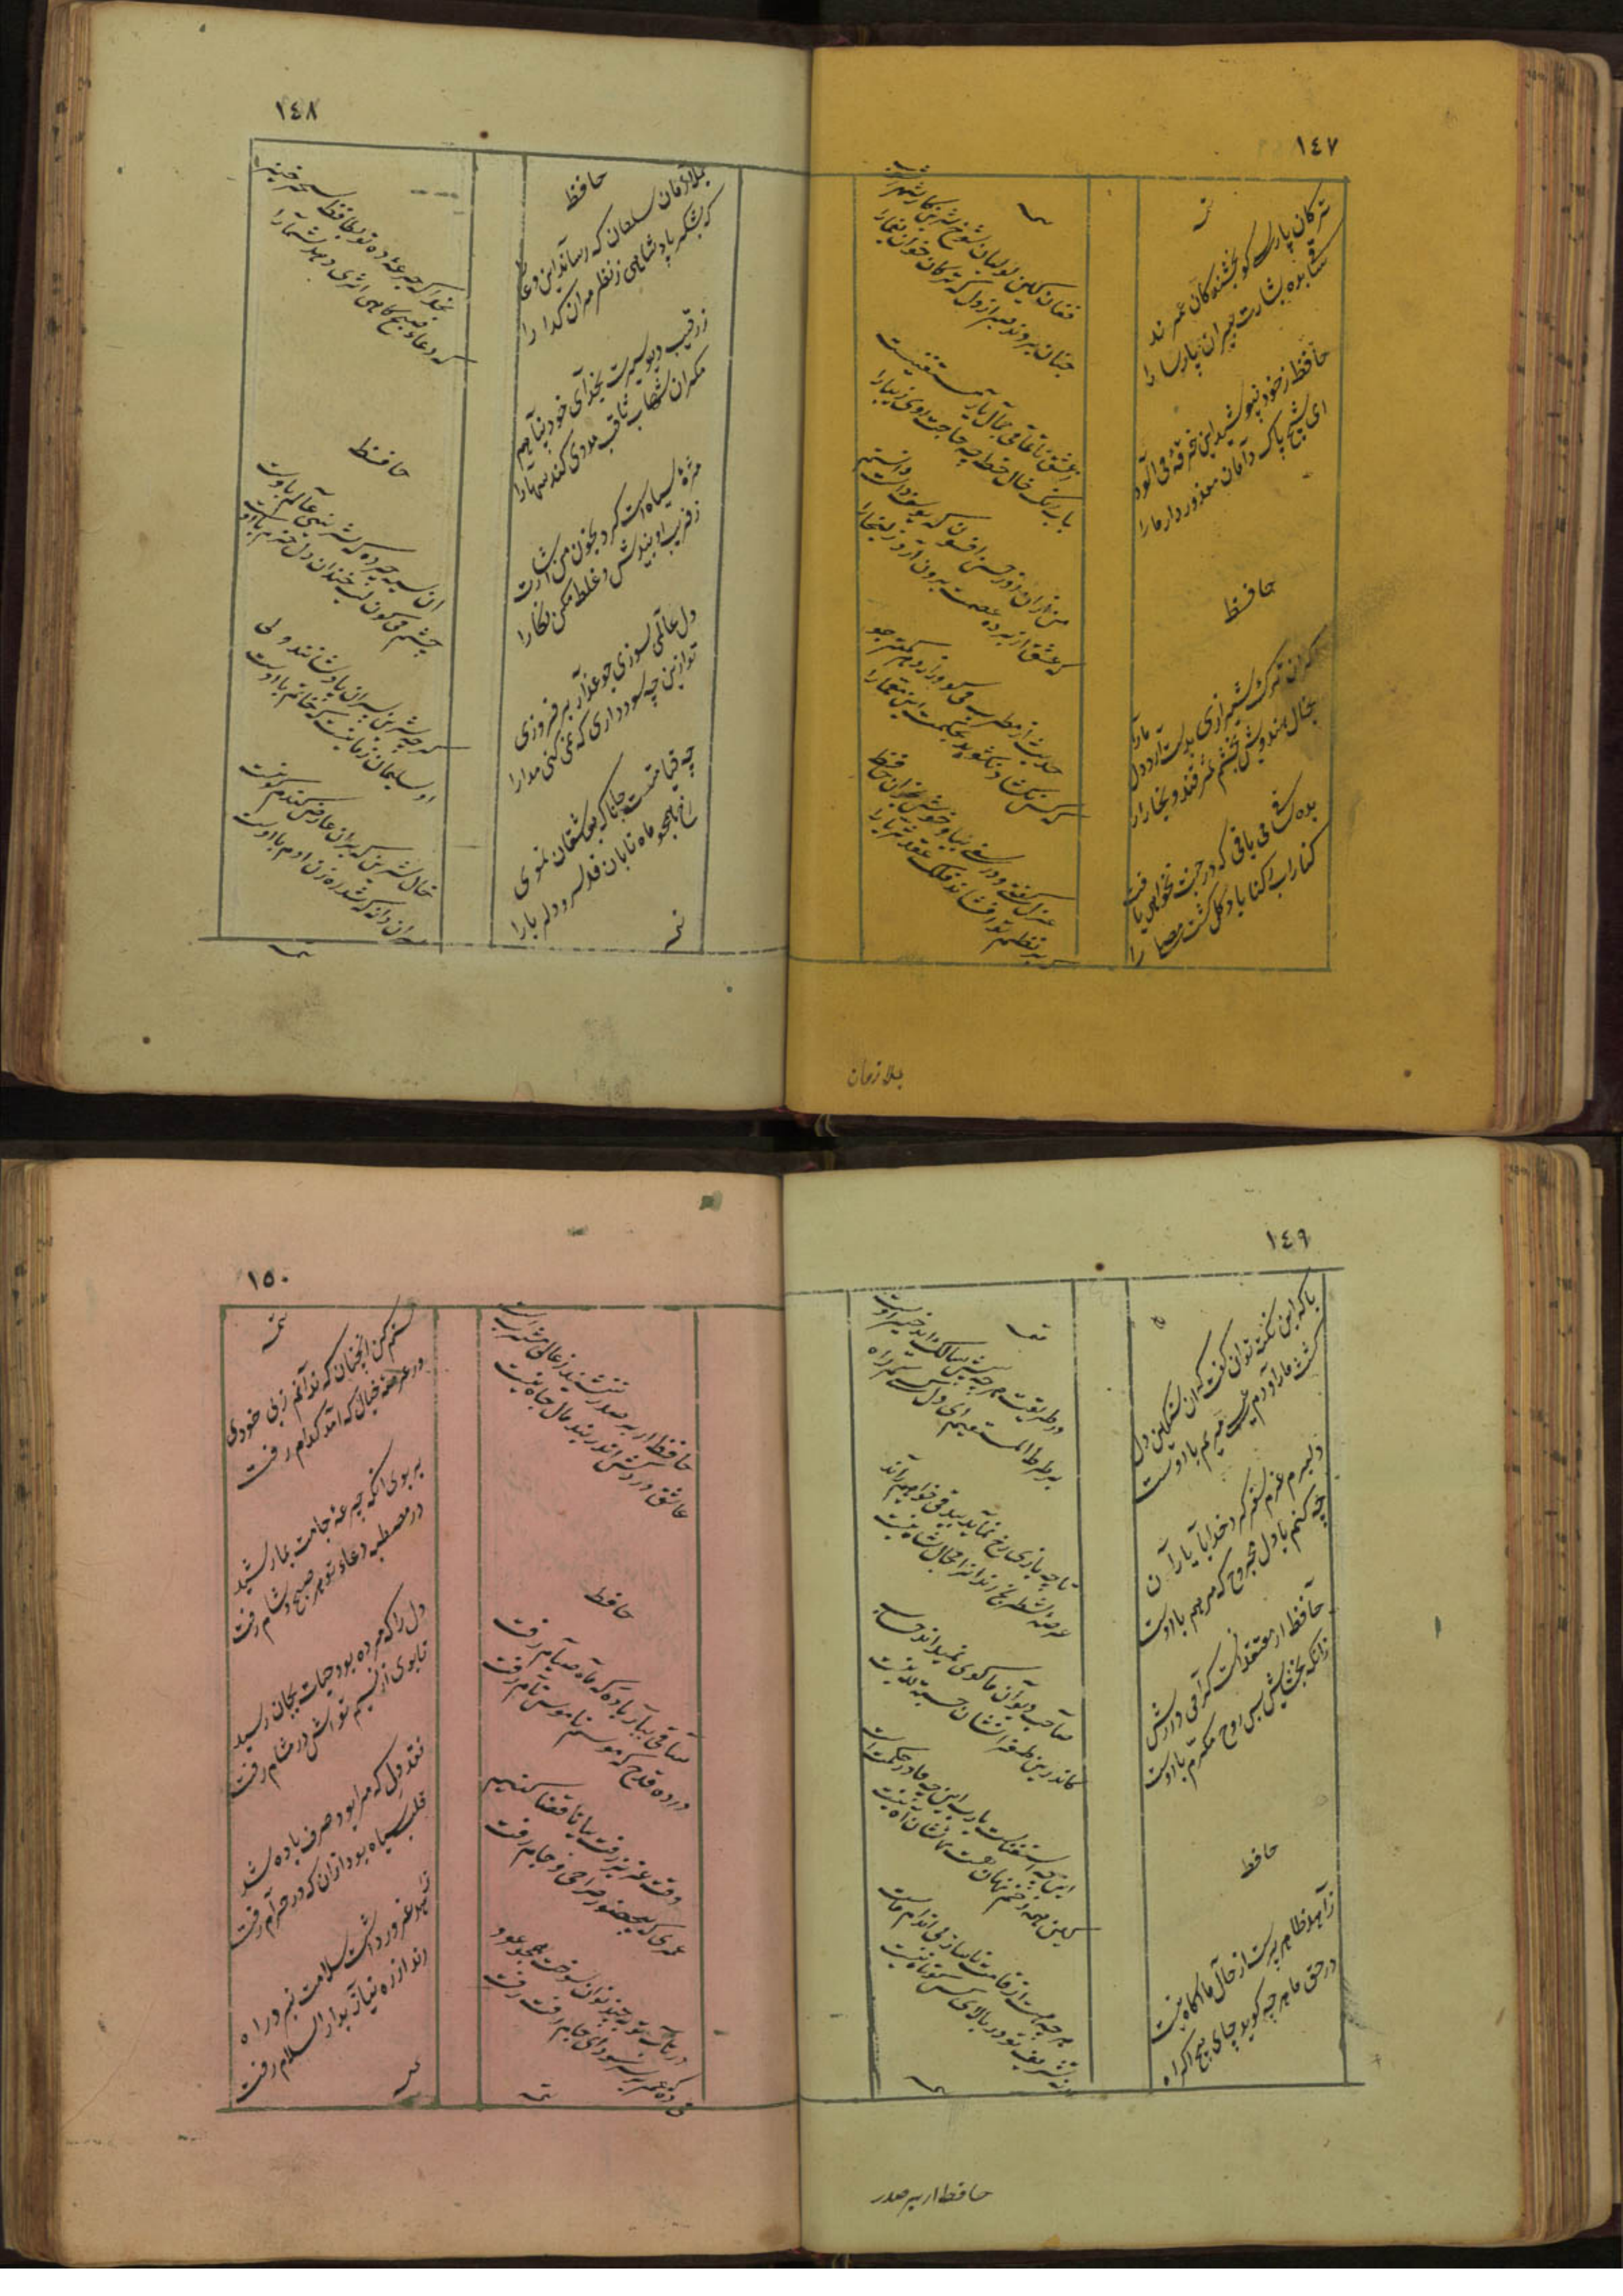 ١٤٧
ترکان پارسی کو بخشندکان عمرند
ساقی بده بشارت پیران پارسا را
حافظ ز خود نپوشید این خرقه می آلود
ای شیخ پاک دامان معذور دار ما را
حافظ
اکر ان ترک شیرازی بدست آرد دل ما را
بخال هندویش بخشم سمرقند و بخارا را
بده ساقی می باقی که در جنت نخواهی یافت
کنار اب رکناباد و کلکشت مصلا را
فغان کین لولیان شوخ شیرین کار شهر اشوب
چنان بردند صبر از دل که ترکان خوان یغما را
ز عشق ناتمام ما جمال یار مستغنیست
باب و رنک و خال و خط چه حاجت روی زیبا را
من از ان حسن روز افزون که یوسف داشت دانستم
که عشق از پرده عصمت برون آرد زلیخا را
حدیث از مطرب و می کو و راز دهر کمتر جو
که کس نکشود و نکشاید بحکمت این معما را
غزل کفتی و در سفتی بیا و خوش بخوان حافظ
که بر نظم تو افشاند فلک عقد ثریا را
بملازمان
١٤٨
حافظ
بملازمان سلطان که رساند این دعا را
که بشکر پادشاهی ز نظر مران کدا را
ز رقیب دیو سیرت بخدای خود پناهم
مکر ان شهاب ثاقب مددی کند سها را
مژهٔ سیاهت ار کرد بخون من اشارت
ز فریب او بیندیش و غلط مکن نکارا
دل عالمی بسوزی چو عذار بر فروزی
تو ازین چه سود داری که نمی کنی مدارا
چه قیامتست جانا که بعاشقان نمودی
رخ همچو ماه تابان قد سرو دلربا را
بخدا که جرعهٔ ده تو بحافظ سحر خیز
که دعاء صبح کاهی اثری دهد شما را
حافظ
ان سیه چرده که شیرینی عالم با اوست
چشم می کون لب خندان دل خرم با اوست
کرچه شیرین دهنان پادشاهند ولی
او سلیمان زمانیست که خاتم با اوست
خال شیرین که بران عارض کندم کونست
سر ان دانه که شد رهزن ادم با اوست
١٤٩
با که این نکته توان کفت که ان سنکین دل
کشت ما را و دم عیسی مریم با اوست
دلبرم عزم سفر کرد خدا را یاران
چه کنم با دل مجروح که مرهم با اوست
حافظ از معتقدانست کرامی دارش
زانکه بخشایش بس روح مکرم با اوست
حافظ
زاهد ظاهر پرست از حال ما اکاه نیست
در حق ما هر چه کوید جای هیچ اکراه نیست
در طریقت هر چه پیش سالک اید خیر اوست
بر صراط المستقیم ای دل کسی کمراه نیست
تا چه بازی رخ نماید بیدقی خواهیم راند
عرصهٔ شطرنج رندانرا مجال شاه نیست
صاحب دیوان ما کوی نمیداند حساب
کاندرین طغرا نشان حسبة لله نیست
این چه استغناست یا رب این چه قادر حکمتست
کین همه زخم نهان هست و مجال آه نیست
هر چه هست از قامت ناساز بی اندام ماست
ورنه تشریف تو بر بالای کس کوتاه نیست
حافظ ار بر صدر
١٥٠
حافظ ار بر صدر ننشیند ز عالی مشربیست
عاشق دردی کش اندر بند مال و جاه نیست
حافظ
ساقی بیار باده که ماه صیام رفت
در ده قدح که موسم ناموس و نام رفت
وقت عزیز رفت بیا تا قضا کنیم
عمری که بیحضور صراحی و جام رفت
در تاب توبه چند توان سوخت همچو عود
می ده که عمر در سر سودای خام رفت
مستم کن انچنان که ندانم ز بی خودی
در عرصهٔ خیال که آمد کدام رفت
بر بوی انکه جرعهٔ جامت بما رسید
در مصطبه دعاء تو هر صبح و شام رفت
دل را که مرده بود حیات بجان رسید
تا بوی از نسیم تواش در مشام رفت
نقد دل که مرا بود صرف باده شد
قلب سیاه بود ازان که در حرام رفت
زاهد غرور داشت سلامت نبرد راه
رند از ره نیاز بدار السلام رفت